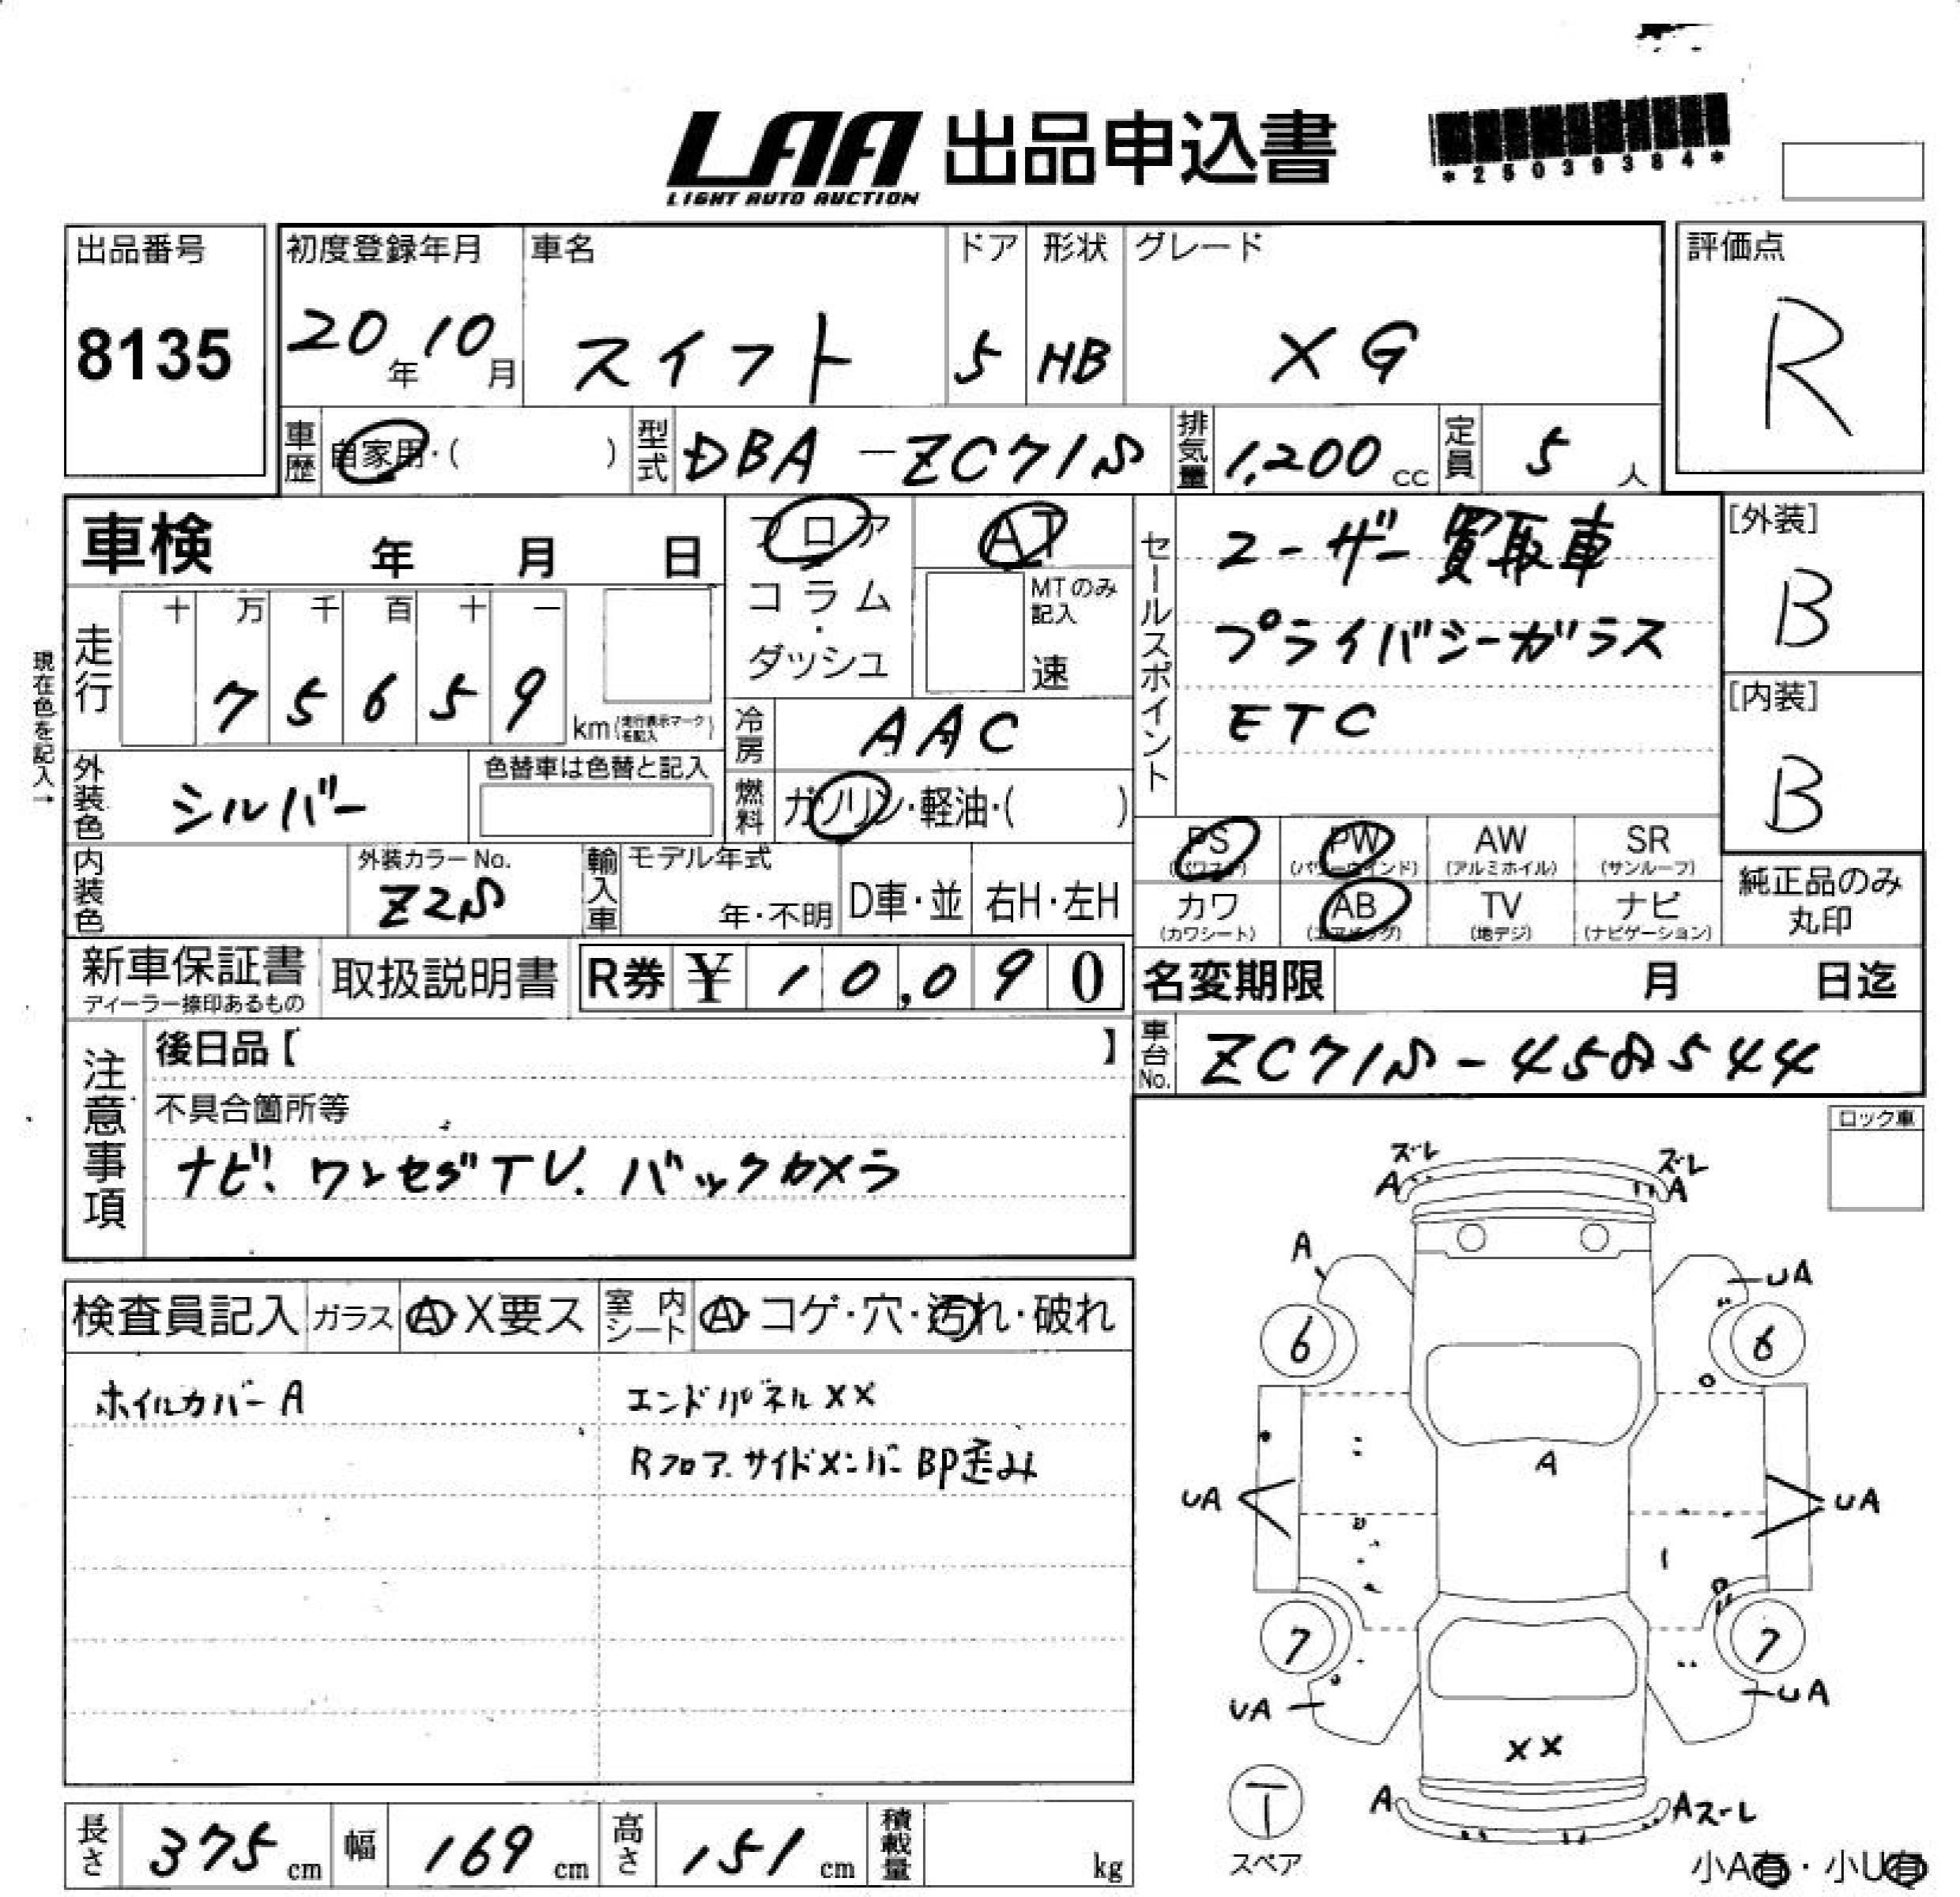 LAA 出品申込書
LIGHT AUTO AUCTION
*25039384*
出品番号
8135
初度登録年月
20年10月
車名
スイフト
ドア
5
形状
HB
グレード
XG
評価点
R
車歴 自家用・( )
型式 DBA-ZC71S
排気量 1,200 cc
定員 5 人
車検 年 月 日
フロア
コラム・ダッシュ
AT
MTのみ記入
速
セールスポイント
ユーザー買取車
プライバシーガラス
ETC
[外装]
B
[内装]
B
現在色を記入→
走行 十 万 千 百 十 一
7 5 6 5 9 km (走行表示マークを記入)
冷房 AAC
外装色 シルバー
色替車は色替と記入
燃料 ガソリン・軽油・( )
PS (パワステ) PW (パワーウインド) AW (アルミホイル) SR (サンルーフ)
カワ (カワシート) AB (エアバッグ) TV (地デジ) ナビ (ナビゲーション)
純正品のみ丸印
内装色
外装カラーNo.
Z2S
輸入車 モデル年式
年・不明 D車・並 右H・左H
新車保証書
ディーラー捺印あるもの
取扱説明書
R券 ¥ 10,090
名変期限 月 日迄
車台No. ZC71S-458544
注意事項
後日品【 】
不具合箇所等
ナビ.ワンセグTV.バックカメラ
ロック車
検査員記入 ガラス A・X要ス 室内シート A・コゲ・穴・汚れ・破れ
ホイルカバーA
エンドパネルXX
Rフロア.サイドメンバーBP歪み
ズレ
A
ズレ
A
A
UA
6
6
A
UA
UA
7
7
UA
UA
XX
A
Aズレ
T
スペア
小A有・小U有
長さ 375 cm
幅 169 cm
高さ 151 cm
積載量 kg